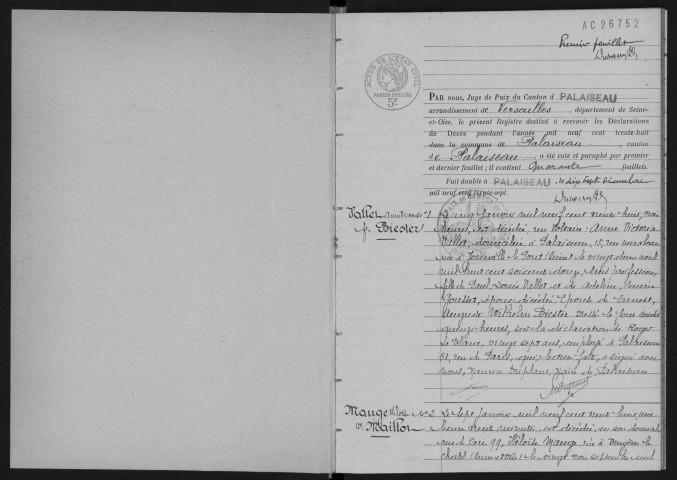 AC26752
Premier feuillet
ACTES DE L'ETAT CIVIL
PAPIER SPECIAL
5F
PAR nous, Juge de Paix du Canton d PALAISEAU
arrondissement de Versailles, département de Seine-
et-Oise, le présent Registre destiné à recevoir les Déclarations
de Décès pendant l'année mil neuf cent trente-huit
dans la commune de Palaiseau, canton
de Palaiseau, a été coté et paraphé par premier
et dernier feuillet; il contient Quarante feuillets.
Fait double à PALAISEAU, le dix sept Décembre
mil neuf cent trente-sept.
Vallet Anne Victoria N° 1
f. Biester
Le cinq Janvier mil neuf cent trente huit, trois
heures, est décédée, rue Voltaire: Anne Victoria
Vallet, domiciliée à Palaiseau, 15, rue Mirabeau
née à Joinville le Pont (Seine) le vingt deux avril
mil huit cent soixante douze, sans profession,
fille de Paul, Louis Vallet et de Adeline, Marie
épouse décédés. Epouse de Ernest,
Auguste Wilhelm Biester. Dressé le jour susdit
quinze heures, sur la déclaration de Roger
Le Blanc, vingt sept ans, employé à Palaiseau
61, rue de Paris, qui, lecture faite, a signé avec
nous, Maurice, Maire de Palaiseau
Mauge Héloïse N° 2
v. Maillot
Le sept Janvier mil neuf cent trente huit, une
heure trente minutes, est décédée, en son domicile
rue de Paris 99, Héloïse Mauge, née à Bruyères le
Chatel (Seine et Oise) le vingt trois septembre mil